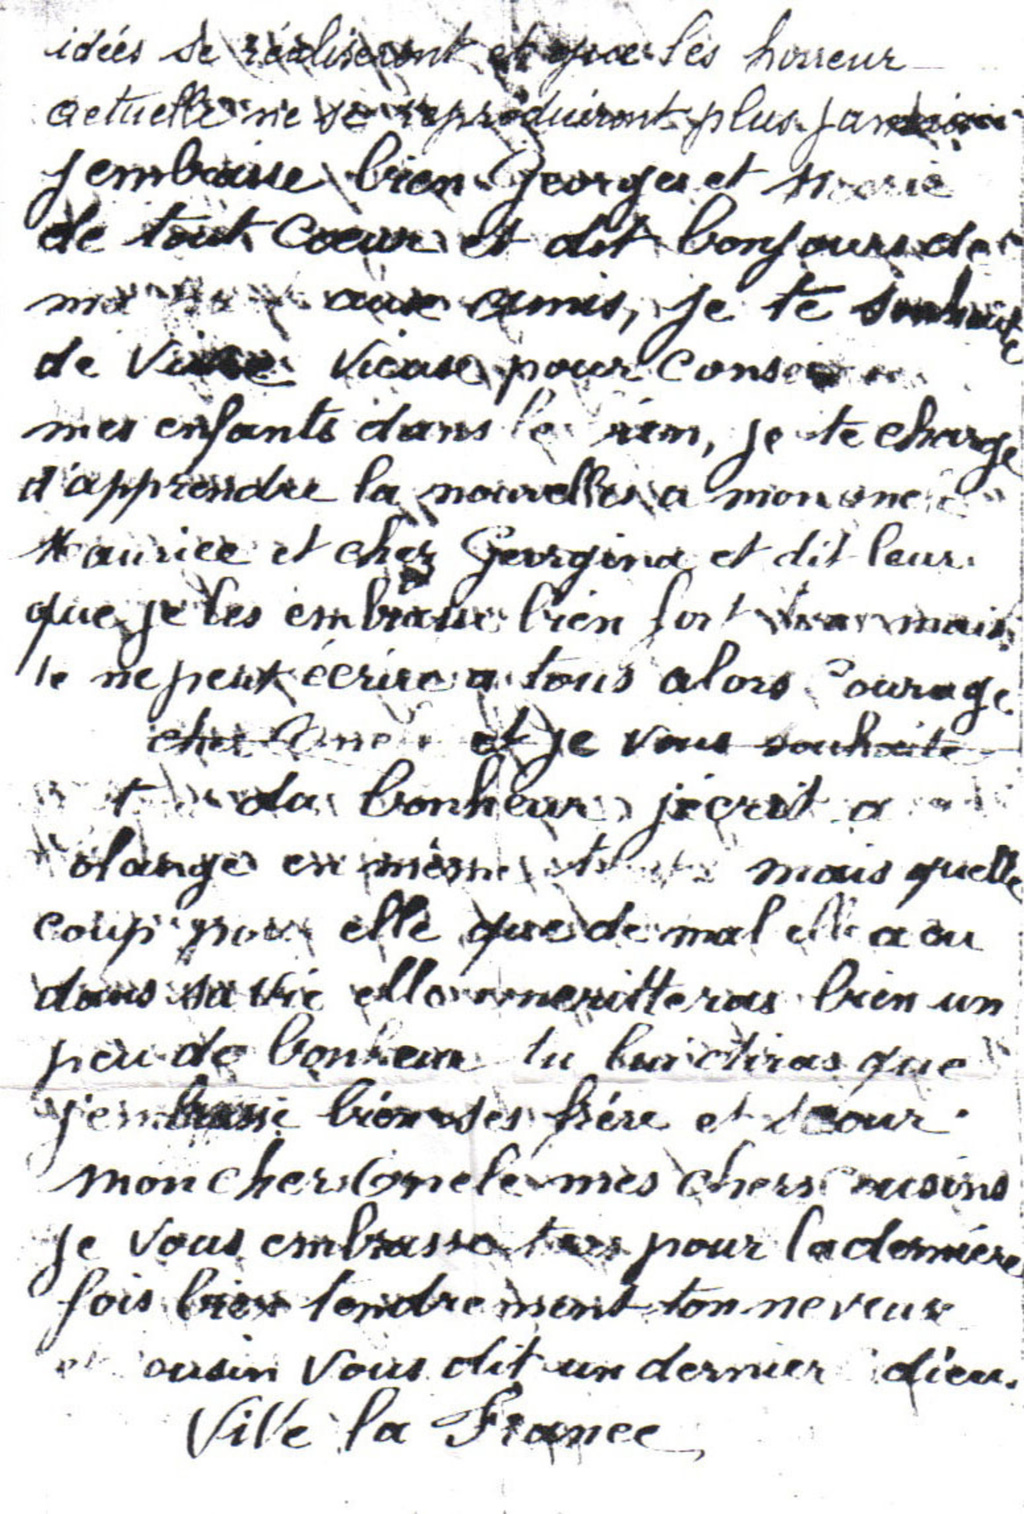 idées se réaliseront et que les horreur
actuelle ne se reproduiront plus jamais
j'embrasse bien Georges et Marie
de tout Cœur et dit bonjours de
ma aux amis, je te souhaite
de vivre vieux pour
mes enfants dans le bien, je te charge
d'apprendre la nouvelles a mon oncle
Maurice et chez Georgina et dit leur
que je les embrasse bien fort mais
je ne peut écrire a tous alors Courage
cher Oncle et je vous souhaite
du bonheur j'écrit a
Solange en même temps mais quelle
coup pour elle que de mal elle a ou
dans sa vie elle meritteras bien un
peu de bonheur tu lui diras que
j'embrasse bien ses frére et sœur
mon cher Oncle mes chers Cousins
je vous embrasse tous pour la dernière
fois bien tendrement ton neveux
et Cousin vous dit un dernier Adieu.
ViVe la France